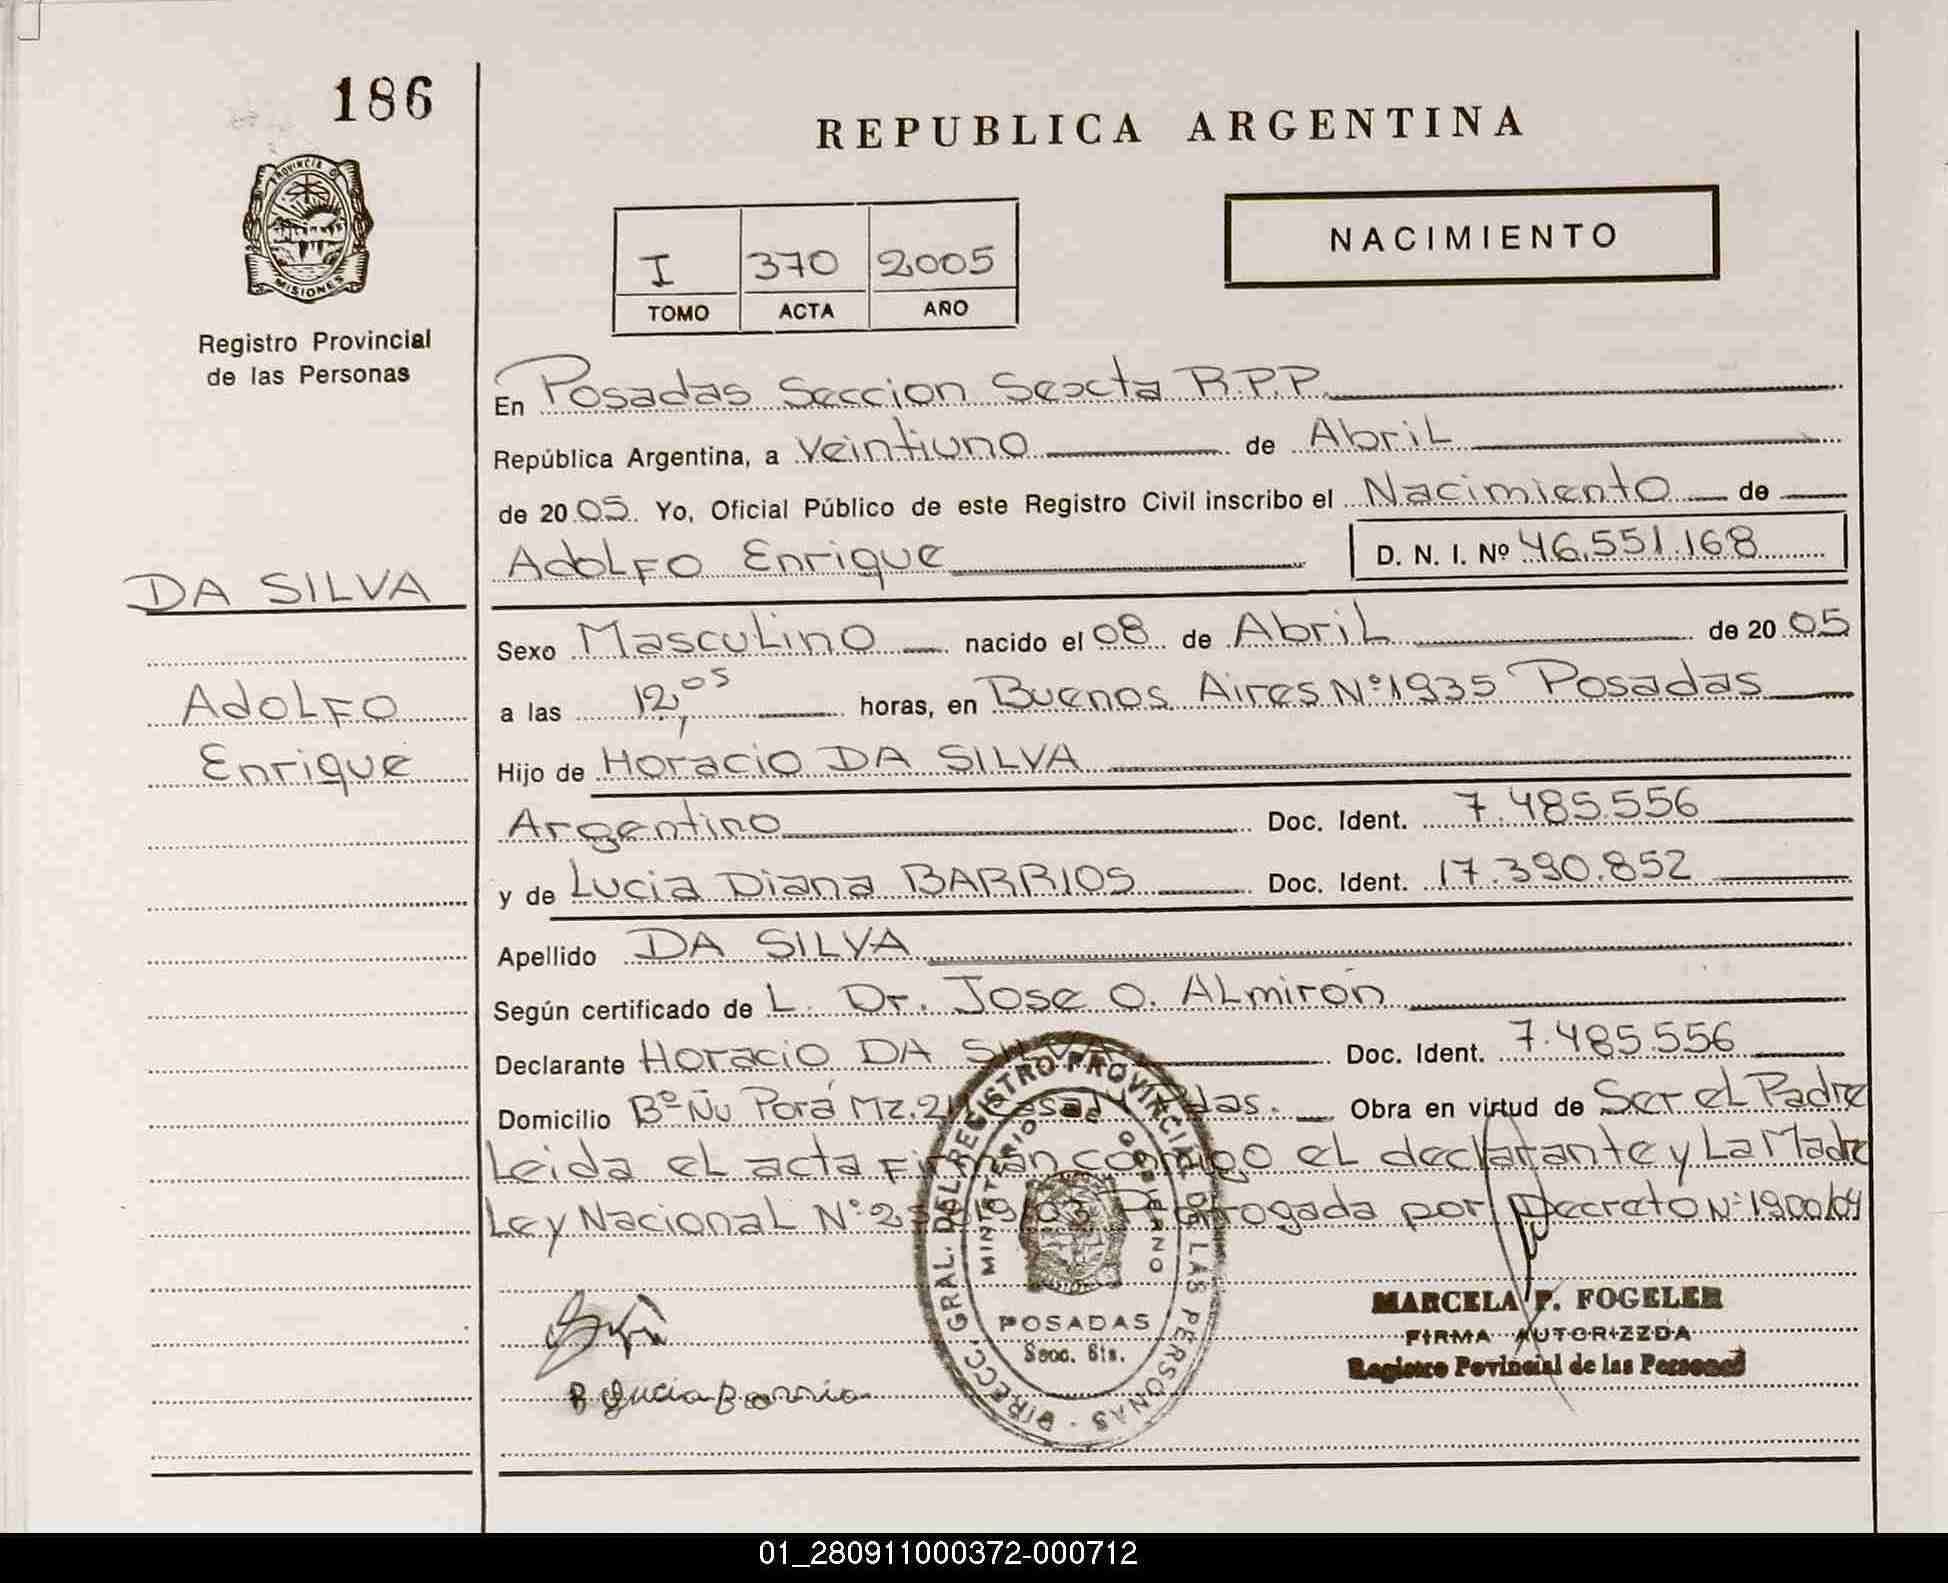 186
REPUBLICA ARGENTINA
PROVINCIA D
MISIONES
Registro Provincial
de las Personas
NACIMIENTO
I 370 2005
TOMO ACTA AÑO
En Posadas Seccion Sexta R.P.P.
República Argentina, a Veintiuno de Abril
de 2005. Yo, Oficial Público de este Registro Civil inscribo el Nacimiento de
Adolfo Enrique D. N. I. Nº 46.551.168
DA SILVA
Adolfo
Enrique
Sexo Masculino nacido el 08 de Abril de 2005
a las 12,05 horas, en Buenos Aires Nº 1935 Posadas
Hijo de Horacio DA SILVA
Argentino Doc. Ident. 7.485.556
y de Lucia Diana BARRIOS Doc. Ident. 17.390.852
Apellido DA SILVA
Según certificado de L. Dr. Jose O. Almirón
Declarante Horacio DA SILVA Doc. Ident. 7.485.556
Domicilio Bº Ñu Porá Mz. Pdas. Obra en virtud de Ser el Padre
Leida el acta firman conmigo el declarante y La Madre
Ley Nacional Nº Prorrogada por Decreto Nº 1900/04
DIRECC. GRAL. DEL REGISTRO PROVINCIAL DE LAS PERSONAS
MINISTERIO GOBIERNO
POSADAS
Secc. 6ta.
MARCELA F. FOGELER
FIRMA AUTORIZZDA
Registro Povincial de las Personas
B Lucia Barrio
01_280911000372-000712